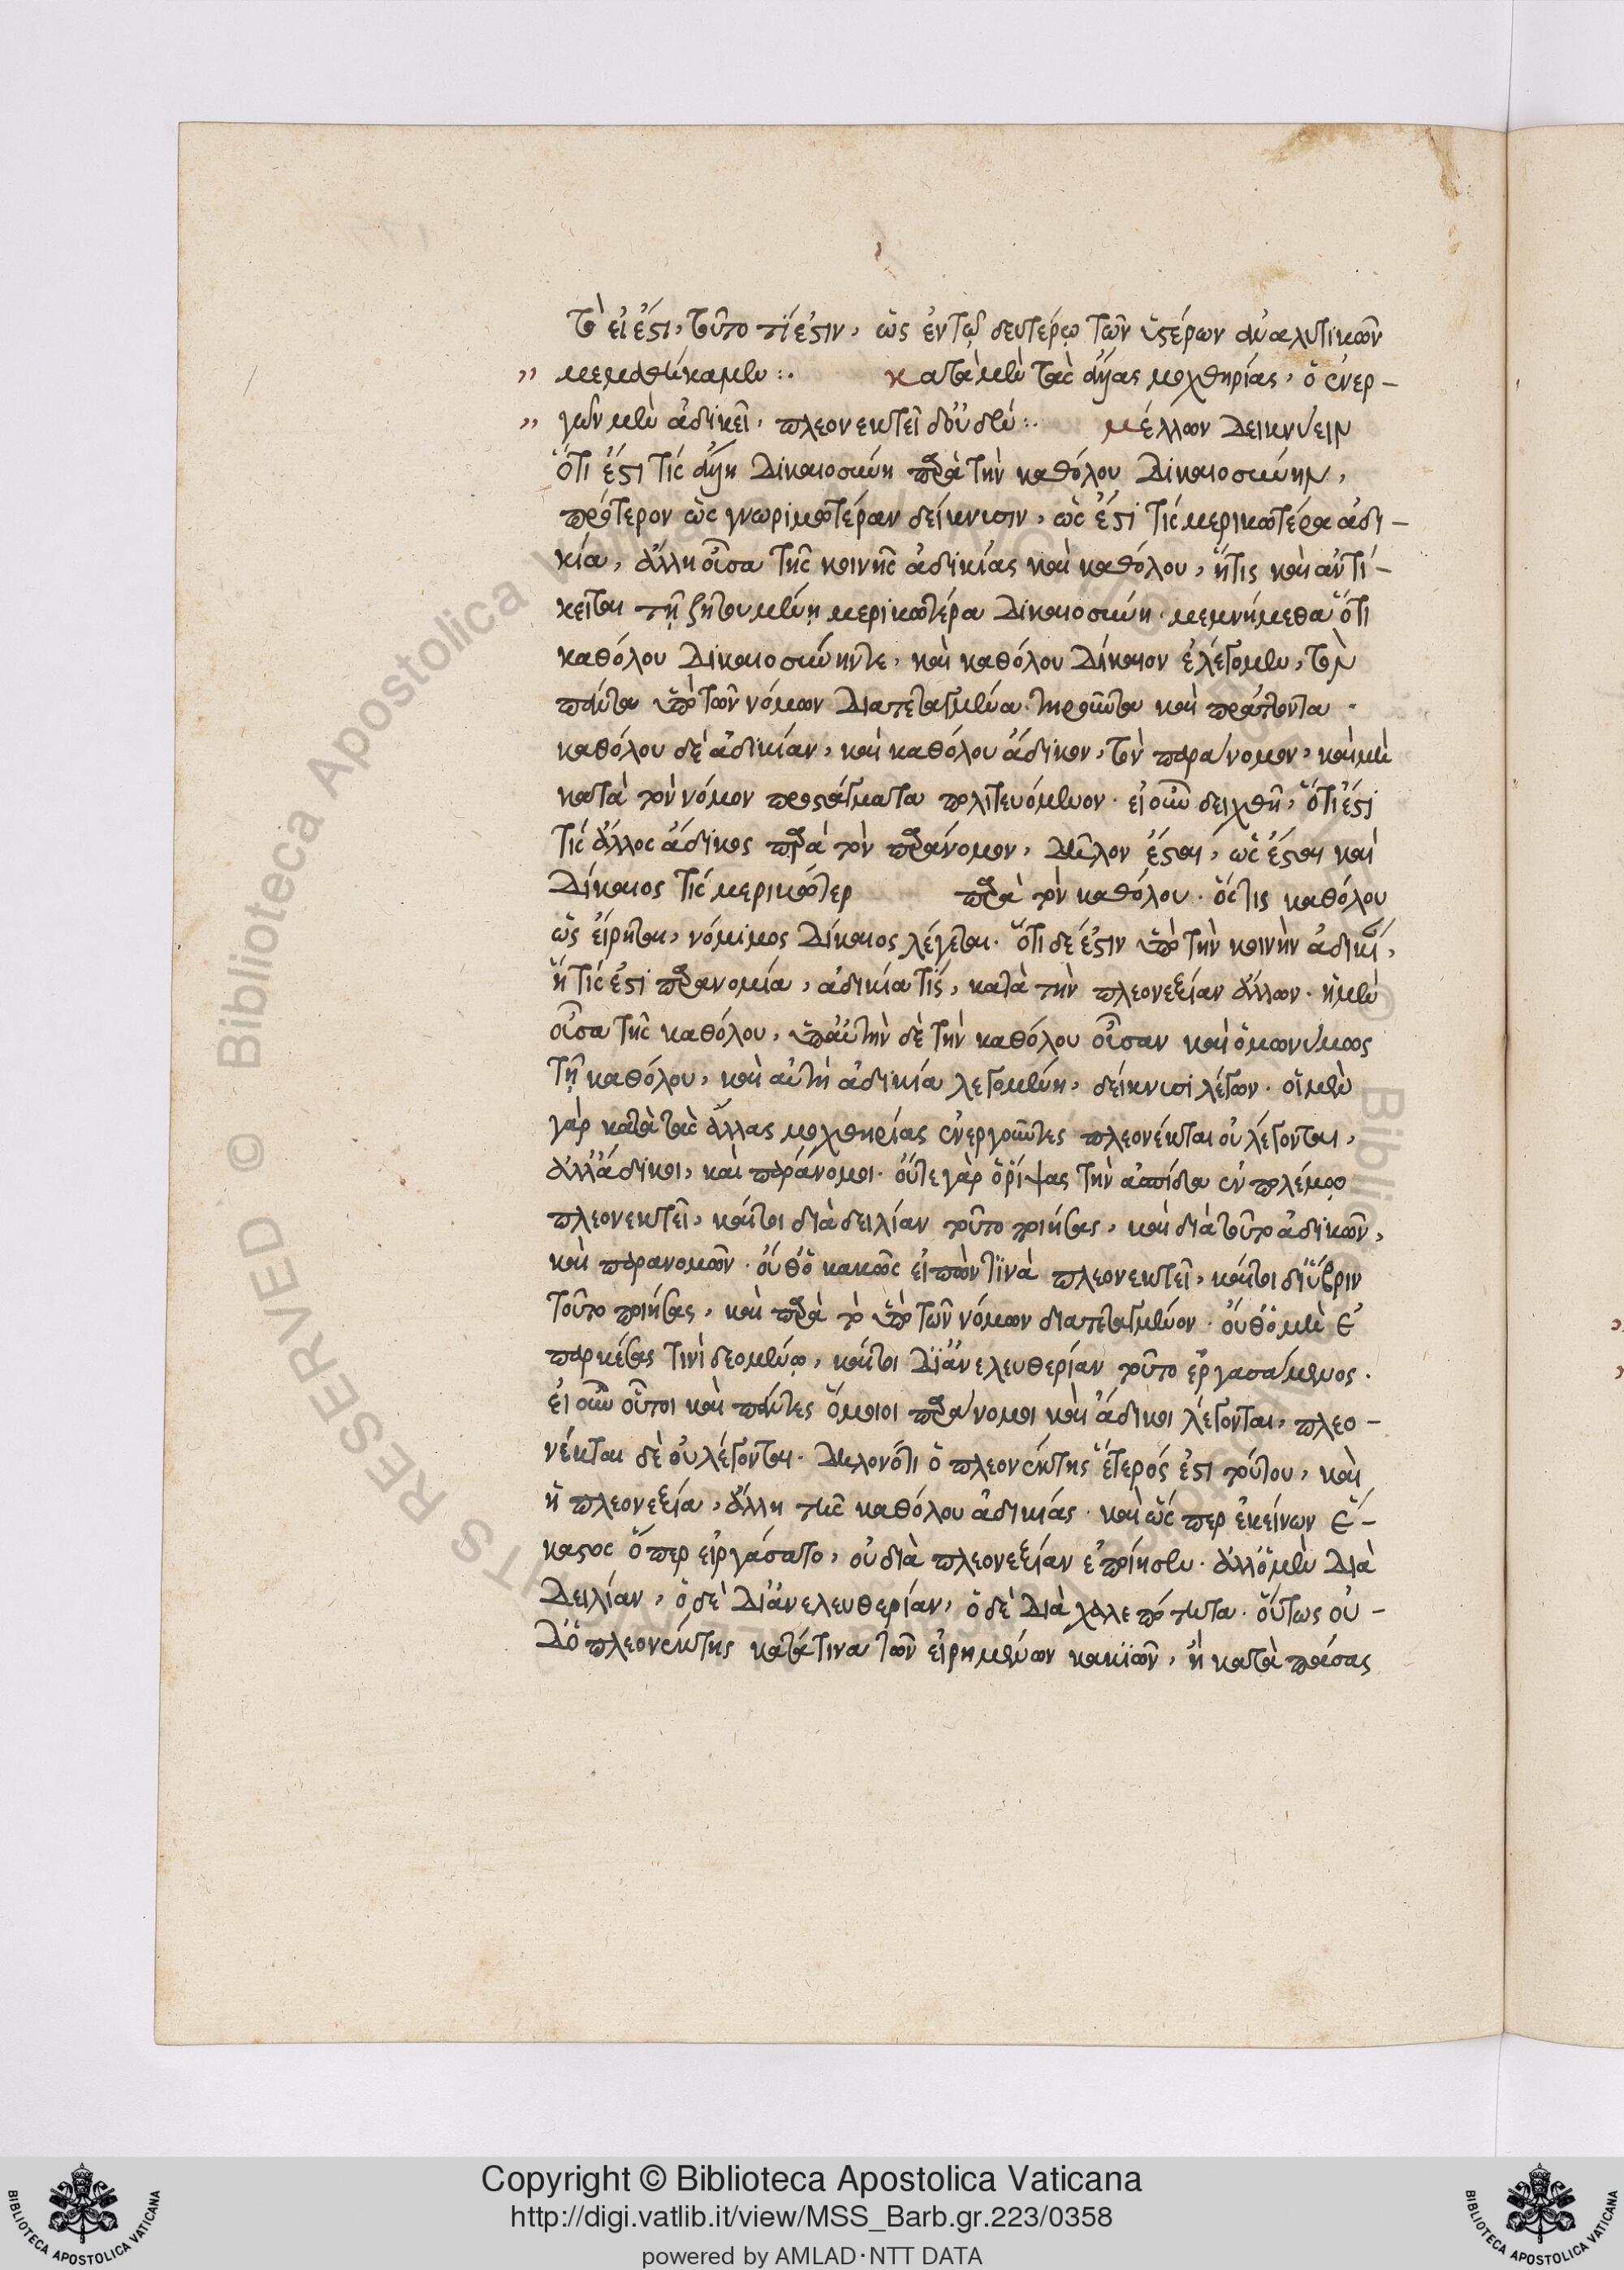 τὸ εἰ ἔστι, τοῦτο τί ἐστιν, ὡς ἐν τῷ δευτέρῳ τῶν ὑστέρων ἀναλυτικῶν
„ μεμαθήκαμεν :. κατὰ μὲν τὰς ἄλλας μοχθηρίας, ὁ ἐνερ-
„ γῶν μὲν ἀδικεῖ, πλεονεκτεῖ δ' οὐδέν :. μέλλων δεικνύειν
ὅτι ἔστι τίς ἄλλη δικαιοσύνη παρὰ τὴν καθόλου δικαιοσύνην,
πρότερον ὡς γνωριμωτέραν δείκνυσιν, ὡς ἔστι τίς μερικωτέρα ἀδι-
κία, ἄλλη οὖσα τῆς κοινῆς ἀδικίας καὶ καθόλου, ἥτις καὶ ἀντί-
κειται τῇ ζητουμένῃ μερικωτέρα δικαιοσύνη. μεμνήμεθα ὅτι
καθόλου δικαιοσύνην τε, καὶ καθόλου δίκαιον ἐλέγομεν, τὸν
πάντα ὑπὸ τῶν νόμων διατεταγμένα τηροῦντα καὶ πράττοντα.
καθόλου δὲ ἀδικίαν, καὶ καθόλου ἄδικον, τὸν παράνομον, καὶ μὴ
κατὰ τὸν νόμον προστάγματα πολιτευόμενον. εἰ οὖν δειχθῇ, ὅτι ἔστι
τίς ἄλλος ἄδικος παρὰ τὸν παράνομον, δῆλον ἔσται, ὡς ἔσται καὶ
δίκαιος τίς μερικώτερ παρὰ τὸν καθόλου. ὅστις καθόλου
ὡς εἴρηται, νόμιμος δίκαιος λέγεται. ὅτι δέ ἐστιν ὑπὸ τὴν κοινὴν ἀδικί,
ἥ τίς ἐστι παρανομία, ἀδικία τίς, κατὰ τὴν πλεονεξίαν ἄλλων. ἡ μὲν
οὖσα τῆς καθόλου, ὑπ' αὐτὴν δὲ τὴν καθόλου οὖσαν καὶ ὁμωνύμως
τῇ καθόλου, καὶ αὐτὴ ἀδικία λεγομένη, δείκνυσι λέγων. οἱ μὲν
γὰρ κατὰ τὰς ἄλλας μοχθηρίας ἐνεργοῦντες πλεονέκται οὐ λέγονται,
ἀλλ' ἄδικοι, καὶ παράνομοι. οὔτε γὰρ ὁ ῥίψας τὴν ἀσπίδα ἐν πολέμῳ
πλεονεκτεῖ, καίτοι διὰ δειλίαν τοῦτο ποιήσας, καὶ διὰ τοῦτο ἀδικῶν,
καὶ παρανομῶν. οὔθ' ὁ κακῶς εἰπὼν τινὰ πλεονεκτεῖ, καίτοι δι' ὕβριν
τοῦτο ποιήσας, καὶ παρὰ τὸ ὑπὸ τῶν νόμων διατεταγμένον. οὔθ' ὁ μὴ ἐ
παρκέσας τινὶ δεομένῳ, καίτοι δι' ἀνελευθερίαν τοῦτο ἐργασάμενος.
εἰ οὖν οὗτοι καὶ πάντες ὅμοιοι παράνομοι καὶ ἄδικοι λέγονται, πλεο-
νέκται δὲ οὐ λέγονται. δηλονότι ὁ πλεονέκτης ἕτερός ἐστι τούτου, καὶ
ἡ πλεονεξία, ἄλλη τῆς καθόλου ἀδικίας. καὶ ὥς περ ἐκείνων ἕ-
καστος ὅπερ εἰργάσατο, οὐ διὰ πλεονεξίαν ἐποίησεν. ἀλλ' ὁ μὲν διὰ
δειλίαν, ὁ δὲ δι' ἀνελευθερίαν, ὁ δὲ διὰ χαλεπότητα. οὕτως οὐ-
δ' ὁ πλεονέκτης κατά τινα τῶν εἰρημένων κακιῶν, ἢ κατὰ πάσας
Copyright © Biblioteca Apostolica Vaticana
http://digi.vatlib.it/view/MSS_Barb.gr.223/0358
powered by AMLAD·NTT DATA